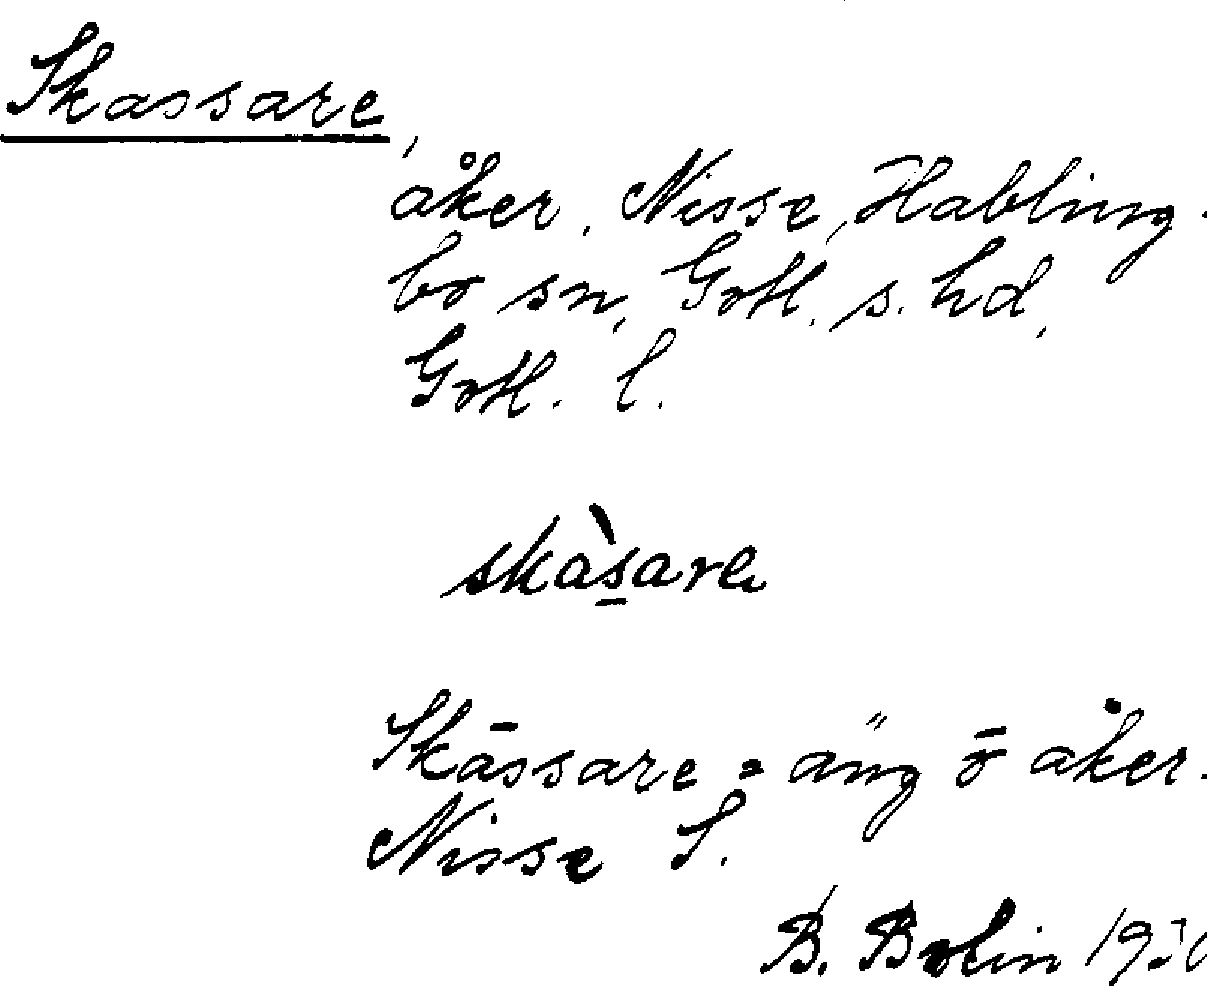 Skassare,
åker, Nisse, Habling-
bo sn, Gotl. s. hd,
Gotl. l.
skàs̠are
Skāssare = äng ō åker.
Nisse S.
B. Bolin